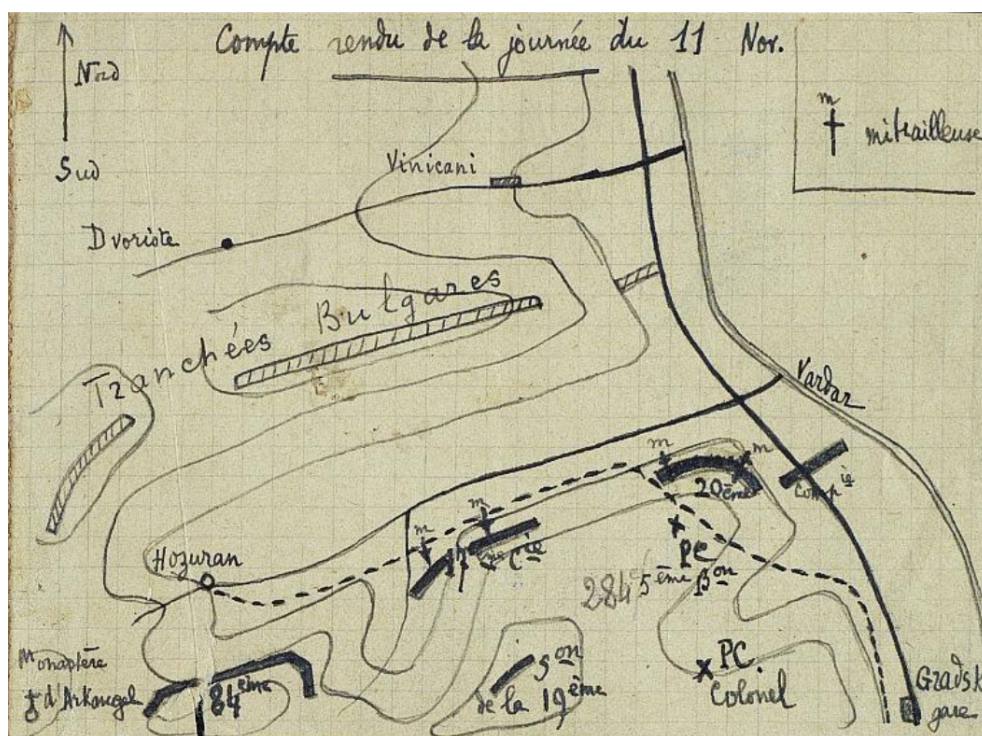 Compte rendu de la journée du 11 Nov.
Nord
Sud
m
mitrailleuse
Vinicani
Dvoriste
Tranchées Bulgares
Vardar
m
m
20ème
Compie
m
m
17ème Cie
Hozuran
PC
5ème Bon
284
Monastère
d'Arkangel
84ème
5on
de la 19ème
PC
Colonel
Gradsk
gare